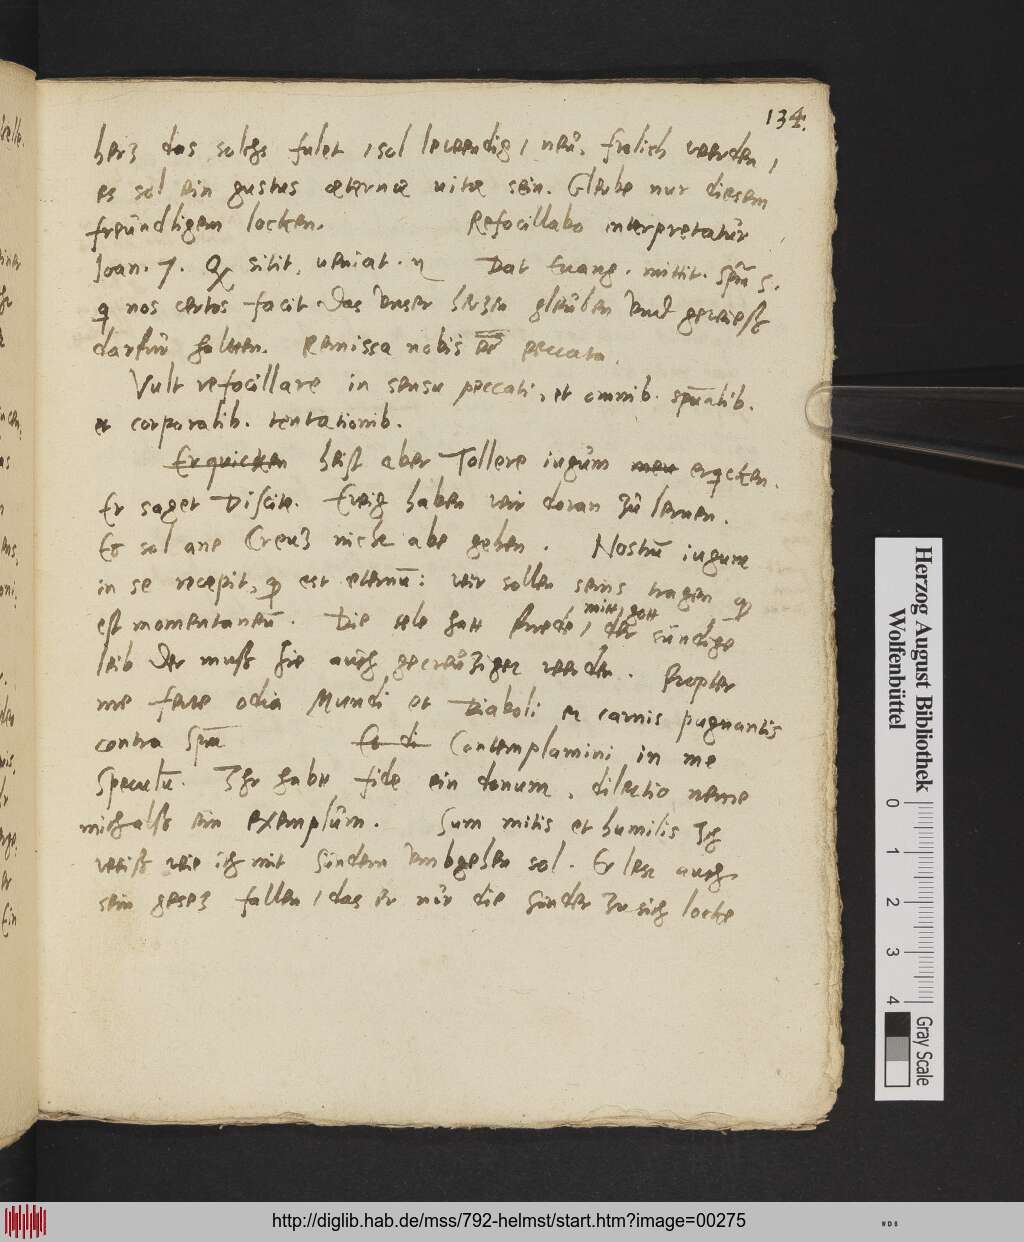 134.
herz das solchs fulet / sol lewendig / neu, frolich werden /
es sol ein gustus æternæ uitæ sein. Gleube nur diesem
freündligem locken. Refocillabo interpretatur
Joan. 7. Q sitit, ueniat. Dat Euang. mittit. spm S.
q nos certos facit das vnser herzen gleuben vnd gewieß
darfur halten. Remissa nobis eē peccata.
Vult refocillare in sensu peccati, et omnib. spualib.
et corporalib. tentationib.
Erquicken heist aber Tollere iugum erqcken.
Er saget Discite. Ewig haben wir doran zu lernen.
Es sol ane Creuz nicht abe gehen. Nostrū iugum
in se recepit, q est eternū: wir sollen seins tragen q
est momentaneū. Die sele hatt friede / mitt gott / der sündige
leib der muß hie auch gecreuziget werden. Propter
me ferre odia Mundi et Diaboli et carnis pugnantis
contra Spm Es di Contemplamini in me
Speculū. Ihr habt fide ein donum, dilectio neme
mich alß ein exemplum. Sum mitis et humilis Ich
weiß wie ich mit sündern vmbgehen sol. Er lest auch
sein gesez fallen / das er nur die sünder zu sich locke
Herzog August Bibliothek
Wolfenbüttel
0 1 2 3 4
Gray Scale
http://diglib.hab.de/mss/792-helmst/start.htm?image=00275